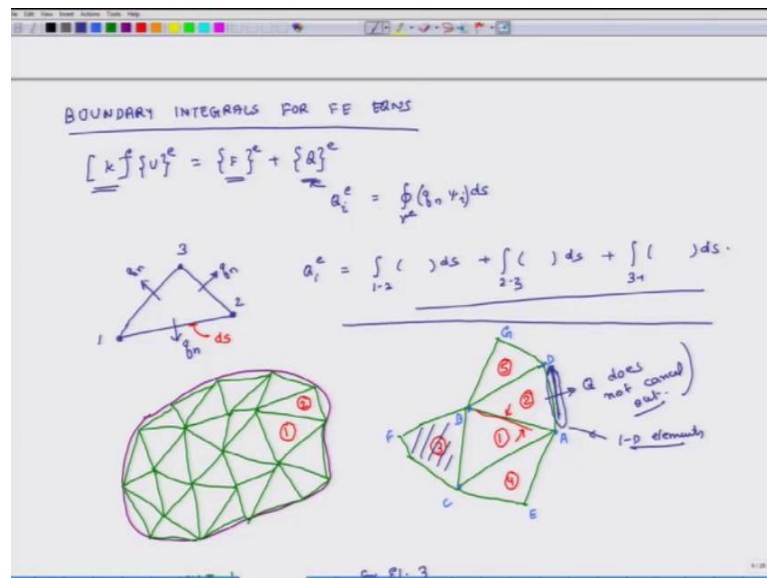 File Edit View Insert Actions Tools Help
BOUNDARY INTEGRALS FOR FE EQNS
[k]^e {u}^e = {F}^e + {Q}^e
Q_i^e = ∮_{Γ^e} (q_n ψ_i) ds
Q_1^e = ∫_{1-2} ( ) ds + ∫_{2-3} ( ) ds + ∫_{3-1} ( ) ds.
3
qn
qn
2
1
qn
ds
②
①
G
⑤
D
Q does
not cancel
out.
②
B
F
③
①
A
1-D elements
④
C
E